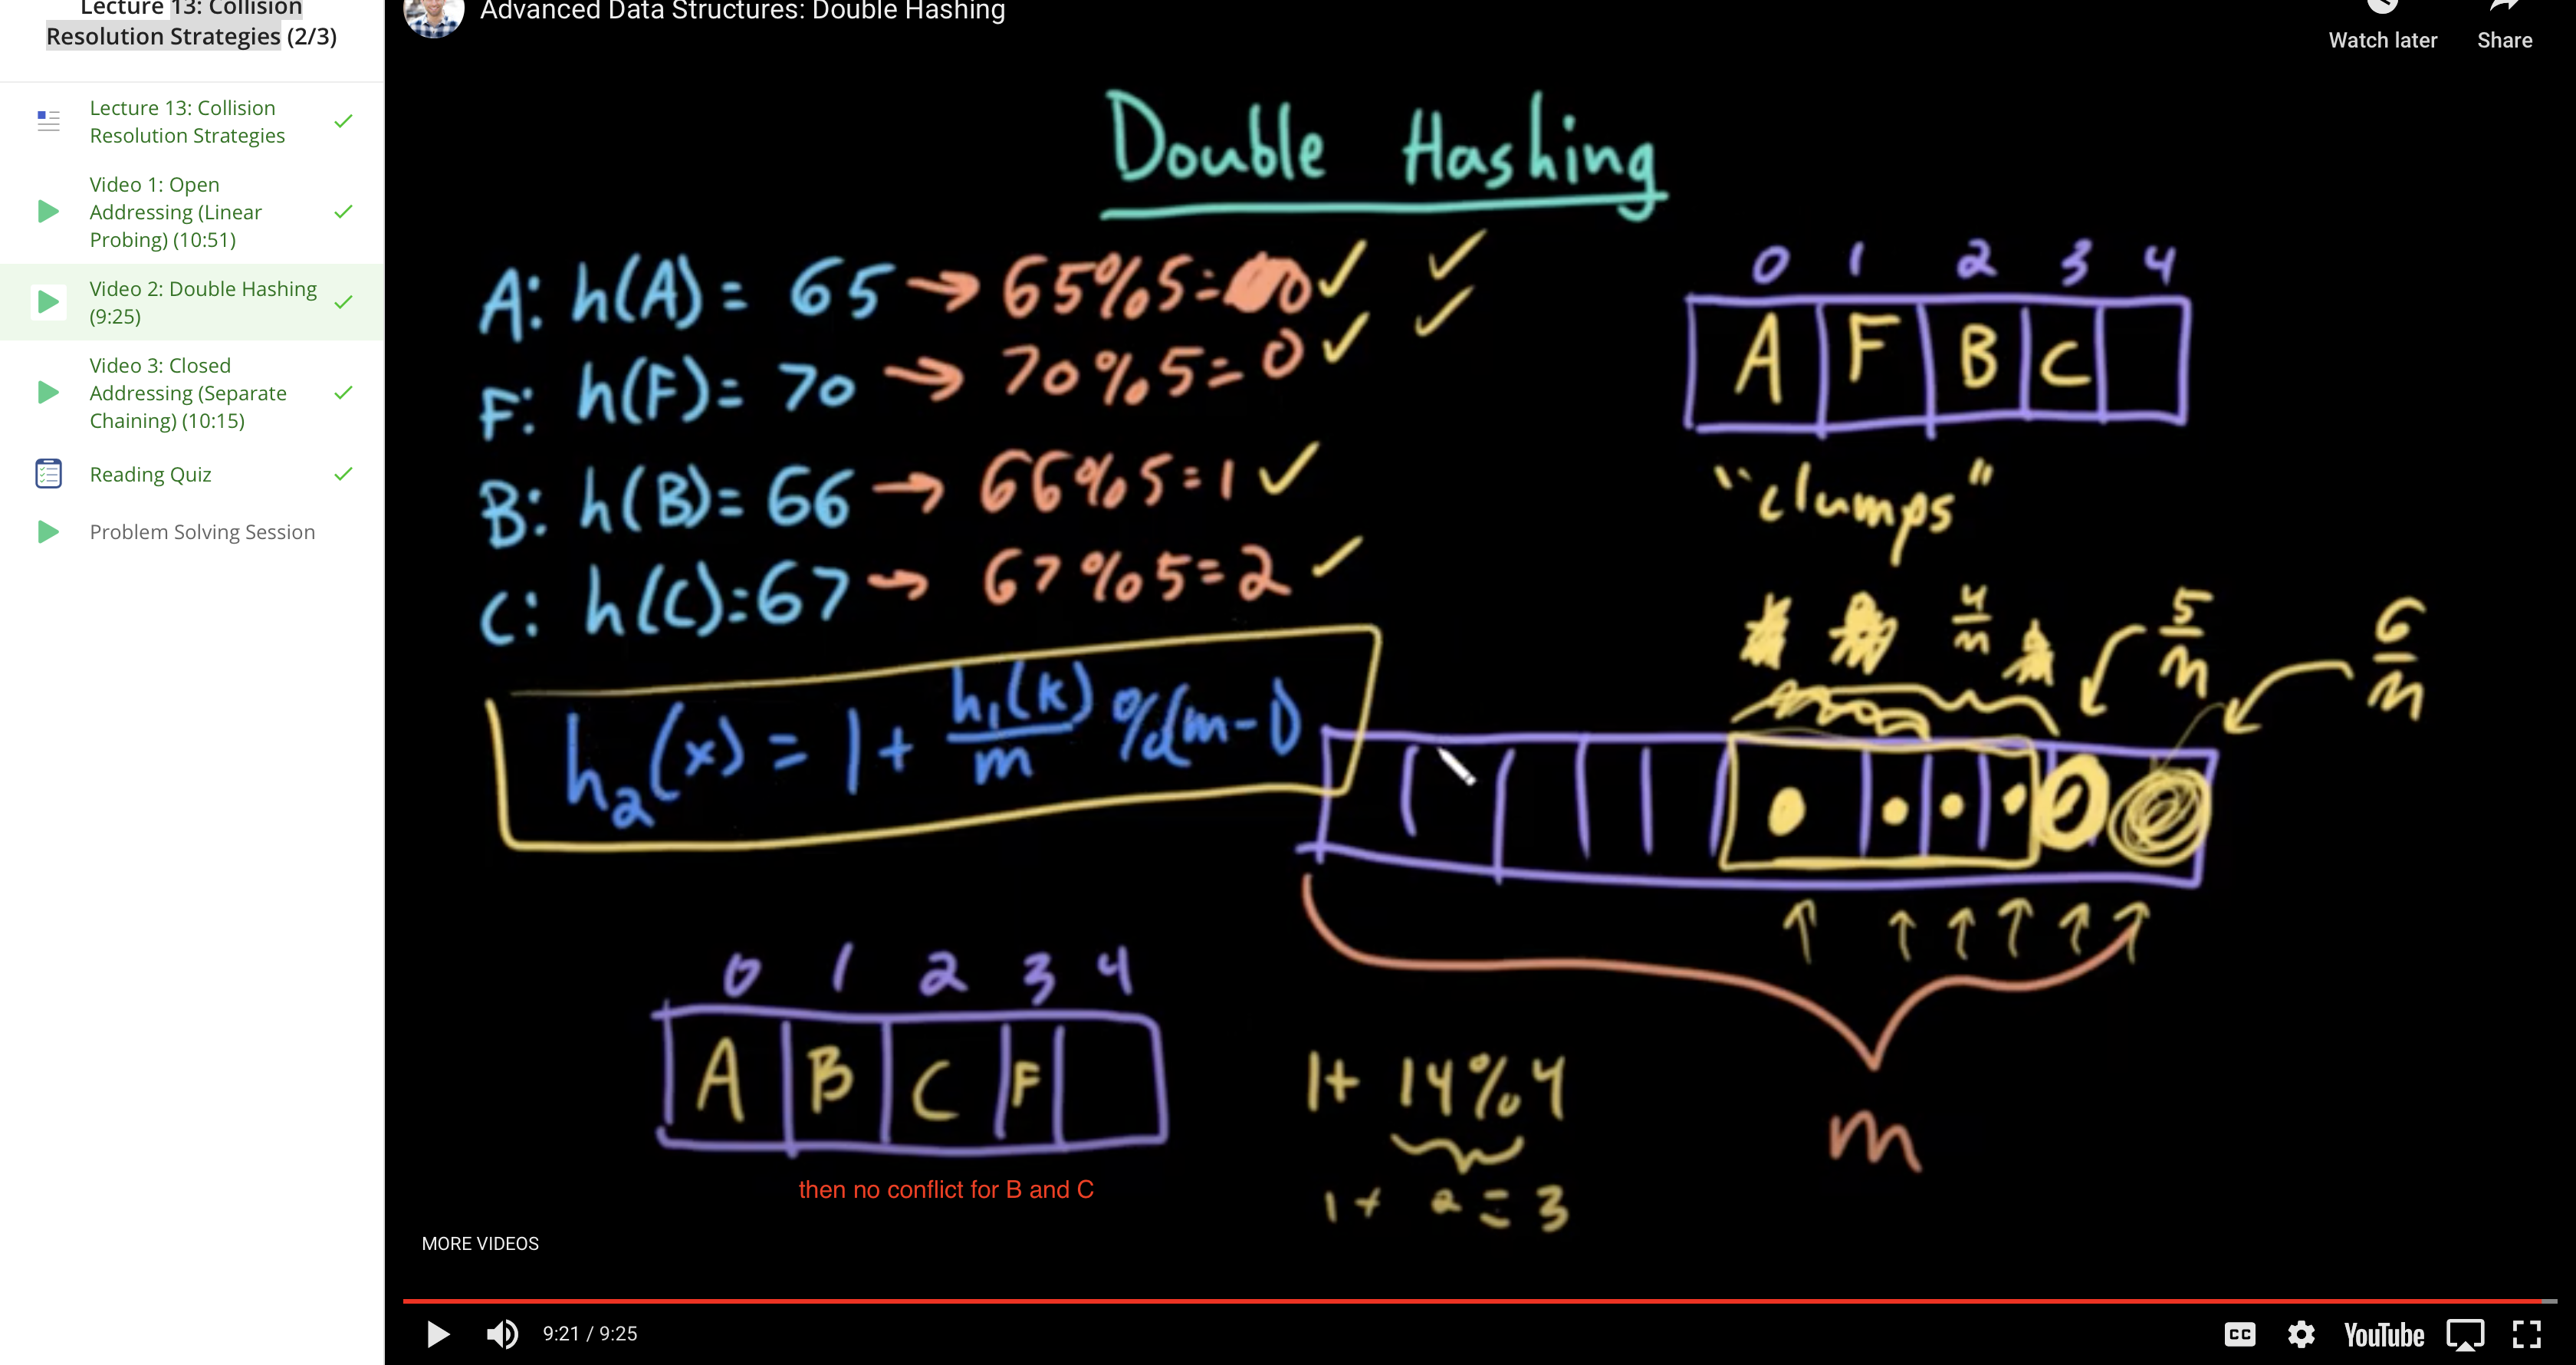 Lecture 13: Collision
Resolution Strategies (2/3)
Lecture 13: Collision
Resolution Strategies
Video 1: Open
Addressing (Linear
Probing) (10:51)
Video 2: Double Hashing
(9:25)
Video 3: Closed
Addressing (Separate
Chaining) (10:15)
Reading Quiz
Problem Solving Session
Advanced Data Structures: Double Hashing
Watch later
Share
Double Hashing
A: h(A) = 65 → 65%5=0
F: h(F) = 70 → 70%5=0
B: h(B) = 66 → 66%5=1
C: h(C)=67 → 67%5=2
h₂(x) = 1 + h₁(k)/m %(m-1)
0 1 2 3 4
A F B C
"clumps"
4/m
5/m
6/m
m
0 1 2 3 4
A B C F
then no conflict for B and C
1+ 14%4
1+ 2=3
MORE VIDEOS
9:21 / 9:25
CC
YouTube